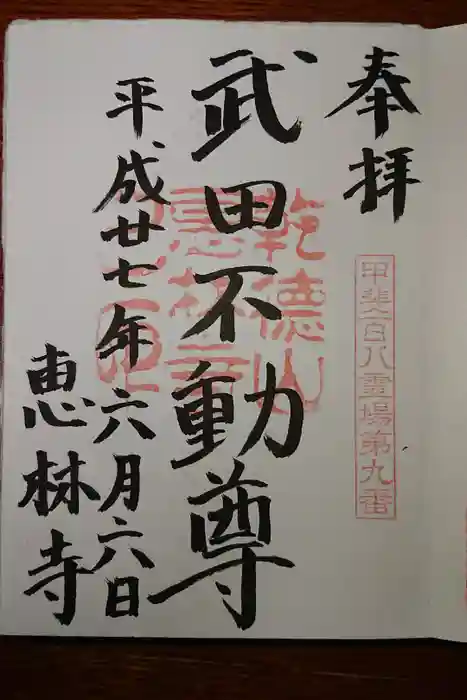 奉拝
甲斐百八霊場第九番
武田不動尊
乾徳山
恵林寺
平成廿七年六月六日
恵林寺